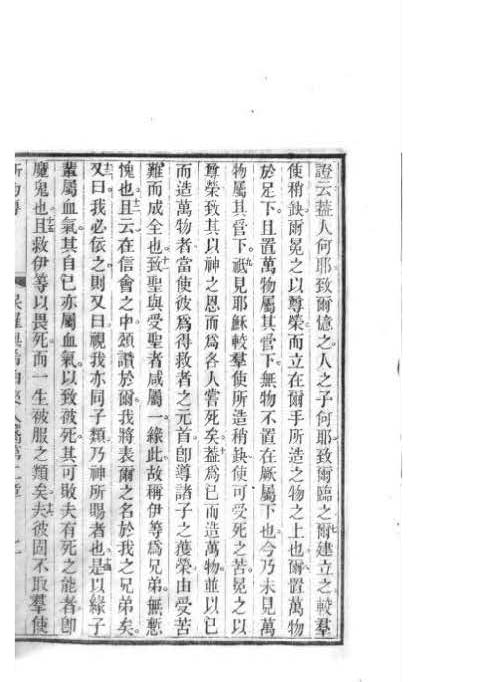 證云葢人何耶致爾憶之人之子何耶致爾臨之爾建立之較羣
使稍缺爾冕之以尊榮而立在爾手所造之物之上也爾置萬物
於足下且置萬物屬其管下無物不置在厥屬下也今乃未見萬
物屬其管下祇見耶穌較羣使所造稍缺使可受死之苦冕之以
尊榮致其以神之恩而爲各人嘗死矣葢爲已而造萬物並以已
而造萬物者當使彼爲得救者之元首卽導諸子之獲榮由受苦
難而成全也致聖與受聖者咸屬一緣此故稱伊等爲兄弟無慙
愧也且云在信會之中頌讚於爾我將表爾之名於我之兄弟矣
又曰我必依之則又曰視我亦同子類乃神所賜者也是以緣子
輩屬血氣其自已亦屬血氣以致彼死其可敗夫有死之能者卽
魔鬼也且救伊等以畏死而一生被服之類矣夫彼固不取羣使